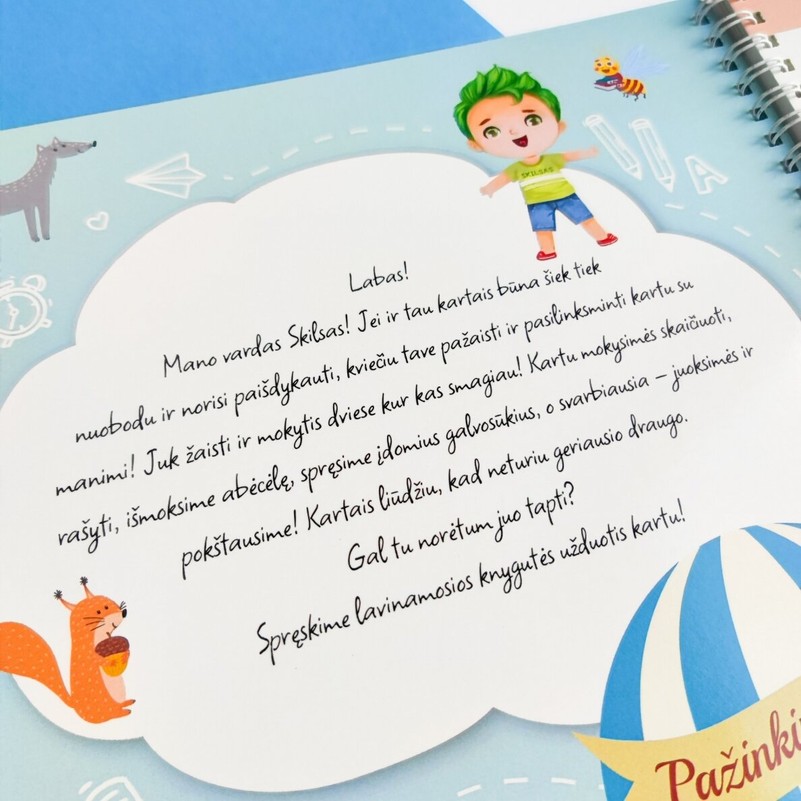 SKILSAS
A
Labas!
Mano vardas Skilsas! Jei ir tau kartais būna šiek tiek
nuobodu ir norisi paišdykauti, kviečiu tave pažaisti ir pasilinksminti kartu su
manimi! Juk žaisti ir mokytis dviese kur kas smagiau! Kartu mokysimės skaičiuoti,
rašyti, išmoksime abėcėlę, spręsime įdomius galvosūkius, o svarbiausia – juoksimės ir
pokštausime! Kartais liūdžiu, kad neturiu geriausio draugo.
Gal tu norėtum juo tapti?
Spręskime lavinamosios knygutės užduotis kartu!